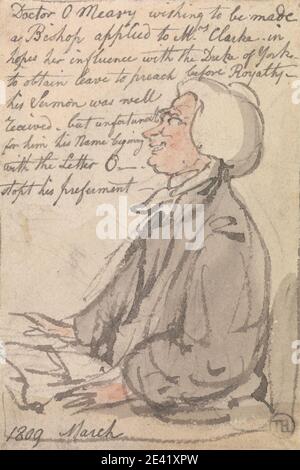 Doctor O Meary wishing to be made
a Bishop applied to Mrs Clarke - in
hopes her influence with the Duke of York
to obtain leave to preach before Royalty -
his Sermon was well
received - but unfortunate
for him his Name begining
with the Letter O - .
stopt his preferment
1809 March
TH
alamy
Image ID: 2E41XPW
www.alamy.com